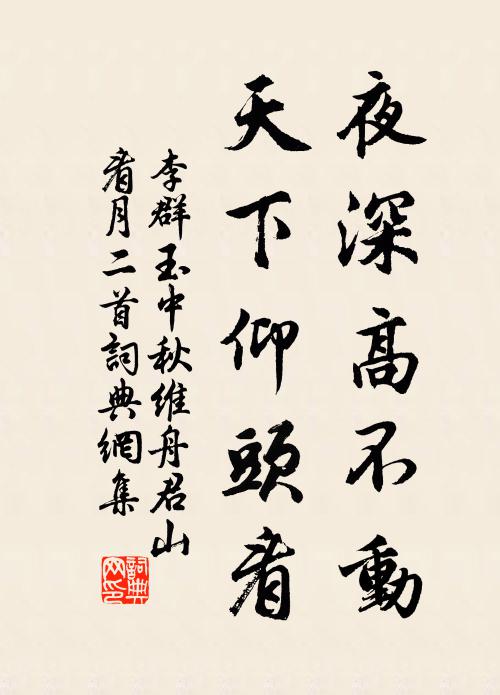 夜深高不動
天下仰頭看
李群玉中秋維舟君山
看月二首詞典網集
詞典
网印